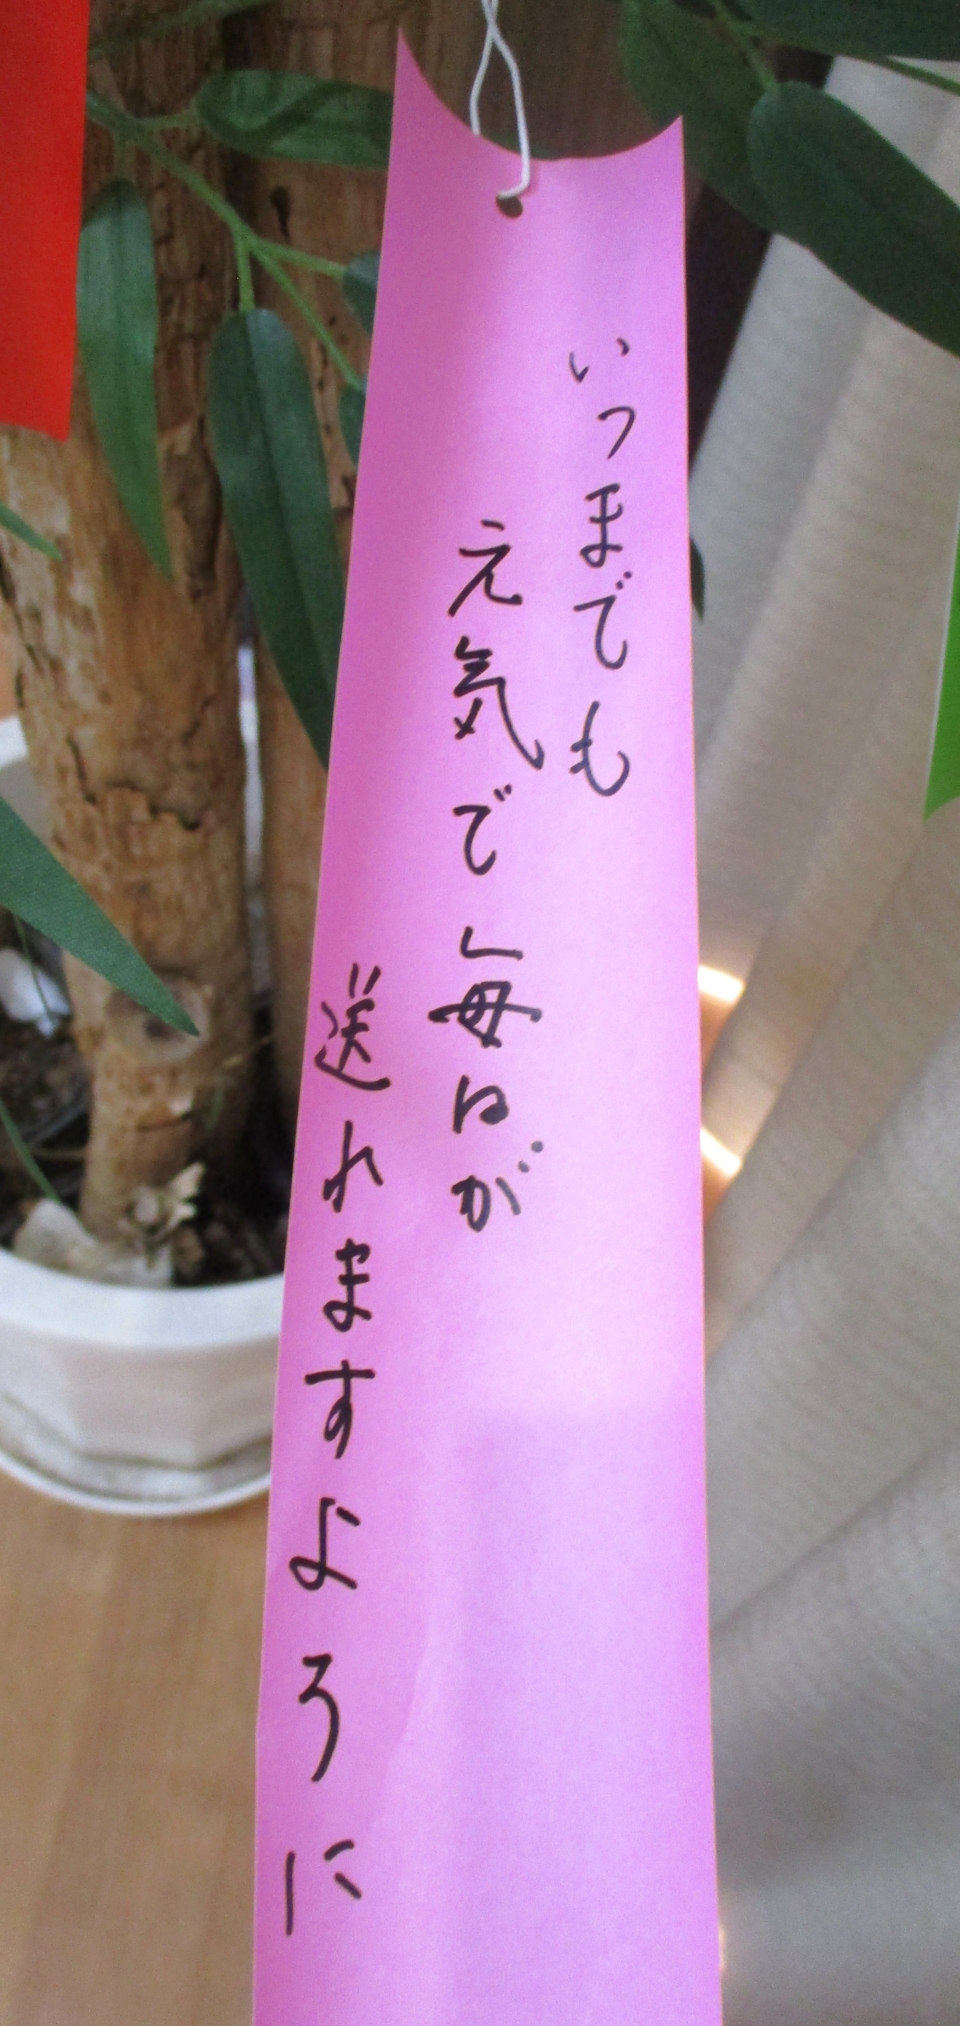 いつまでも
元気で毎日が
送れますように